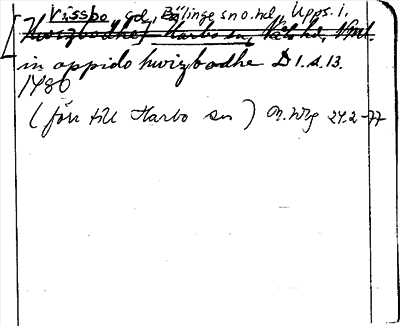 Vissbo gd, Bälinge sn o. hd, Upps. l.
[Hwizbodhe] Harbo sn, Våla hd, Vml.
in oppido hwizbodhe D 1.4.13.
1480
(förr till Harbo sn) 24.2-77